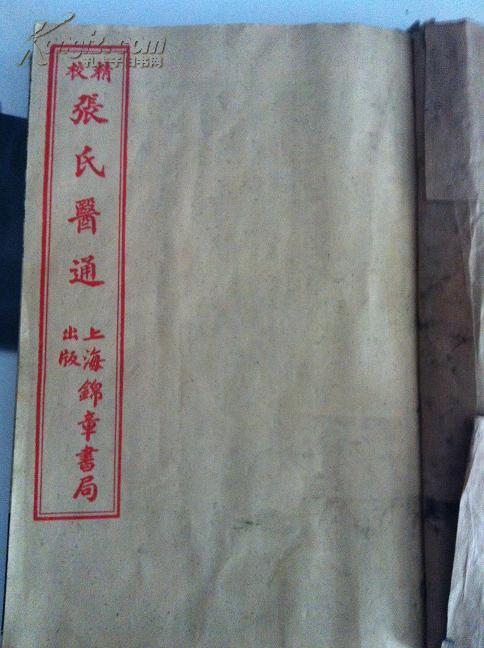 精校
張氏醫通
上海錦章書局
出版
孔夫子旧书网